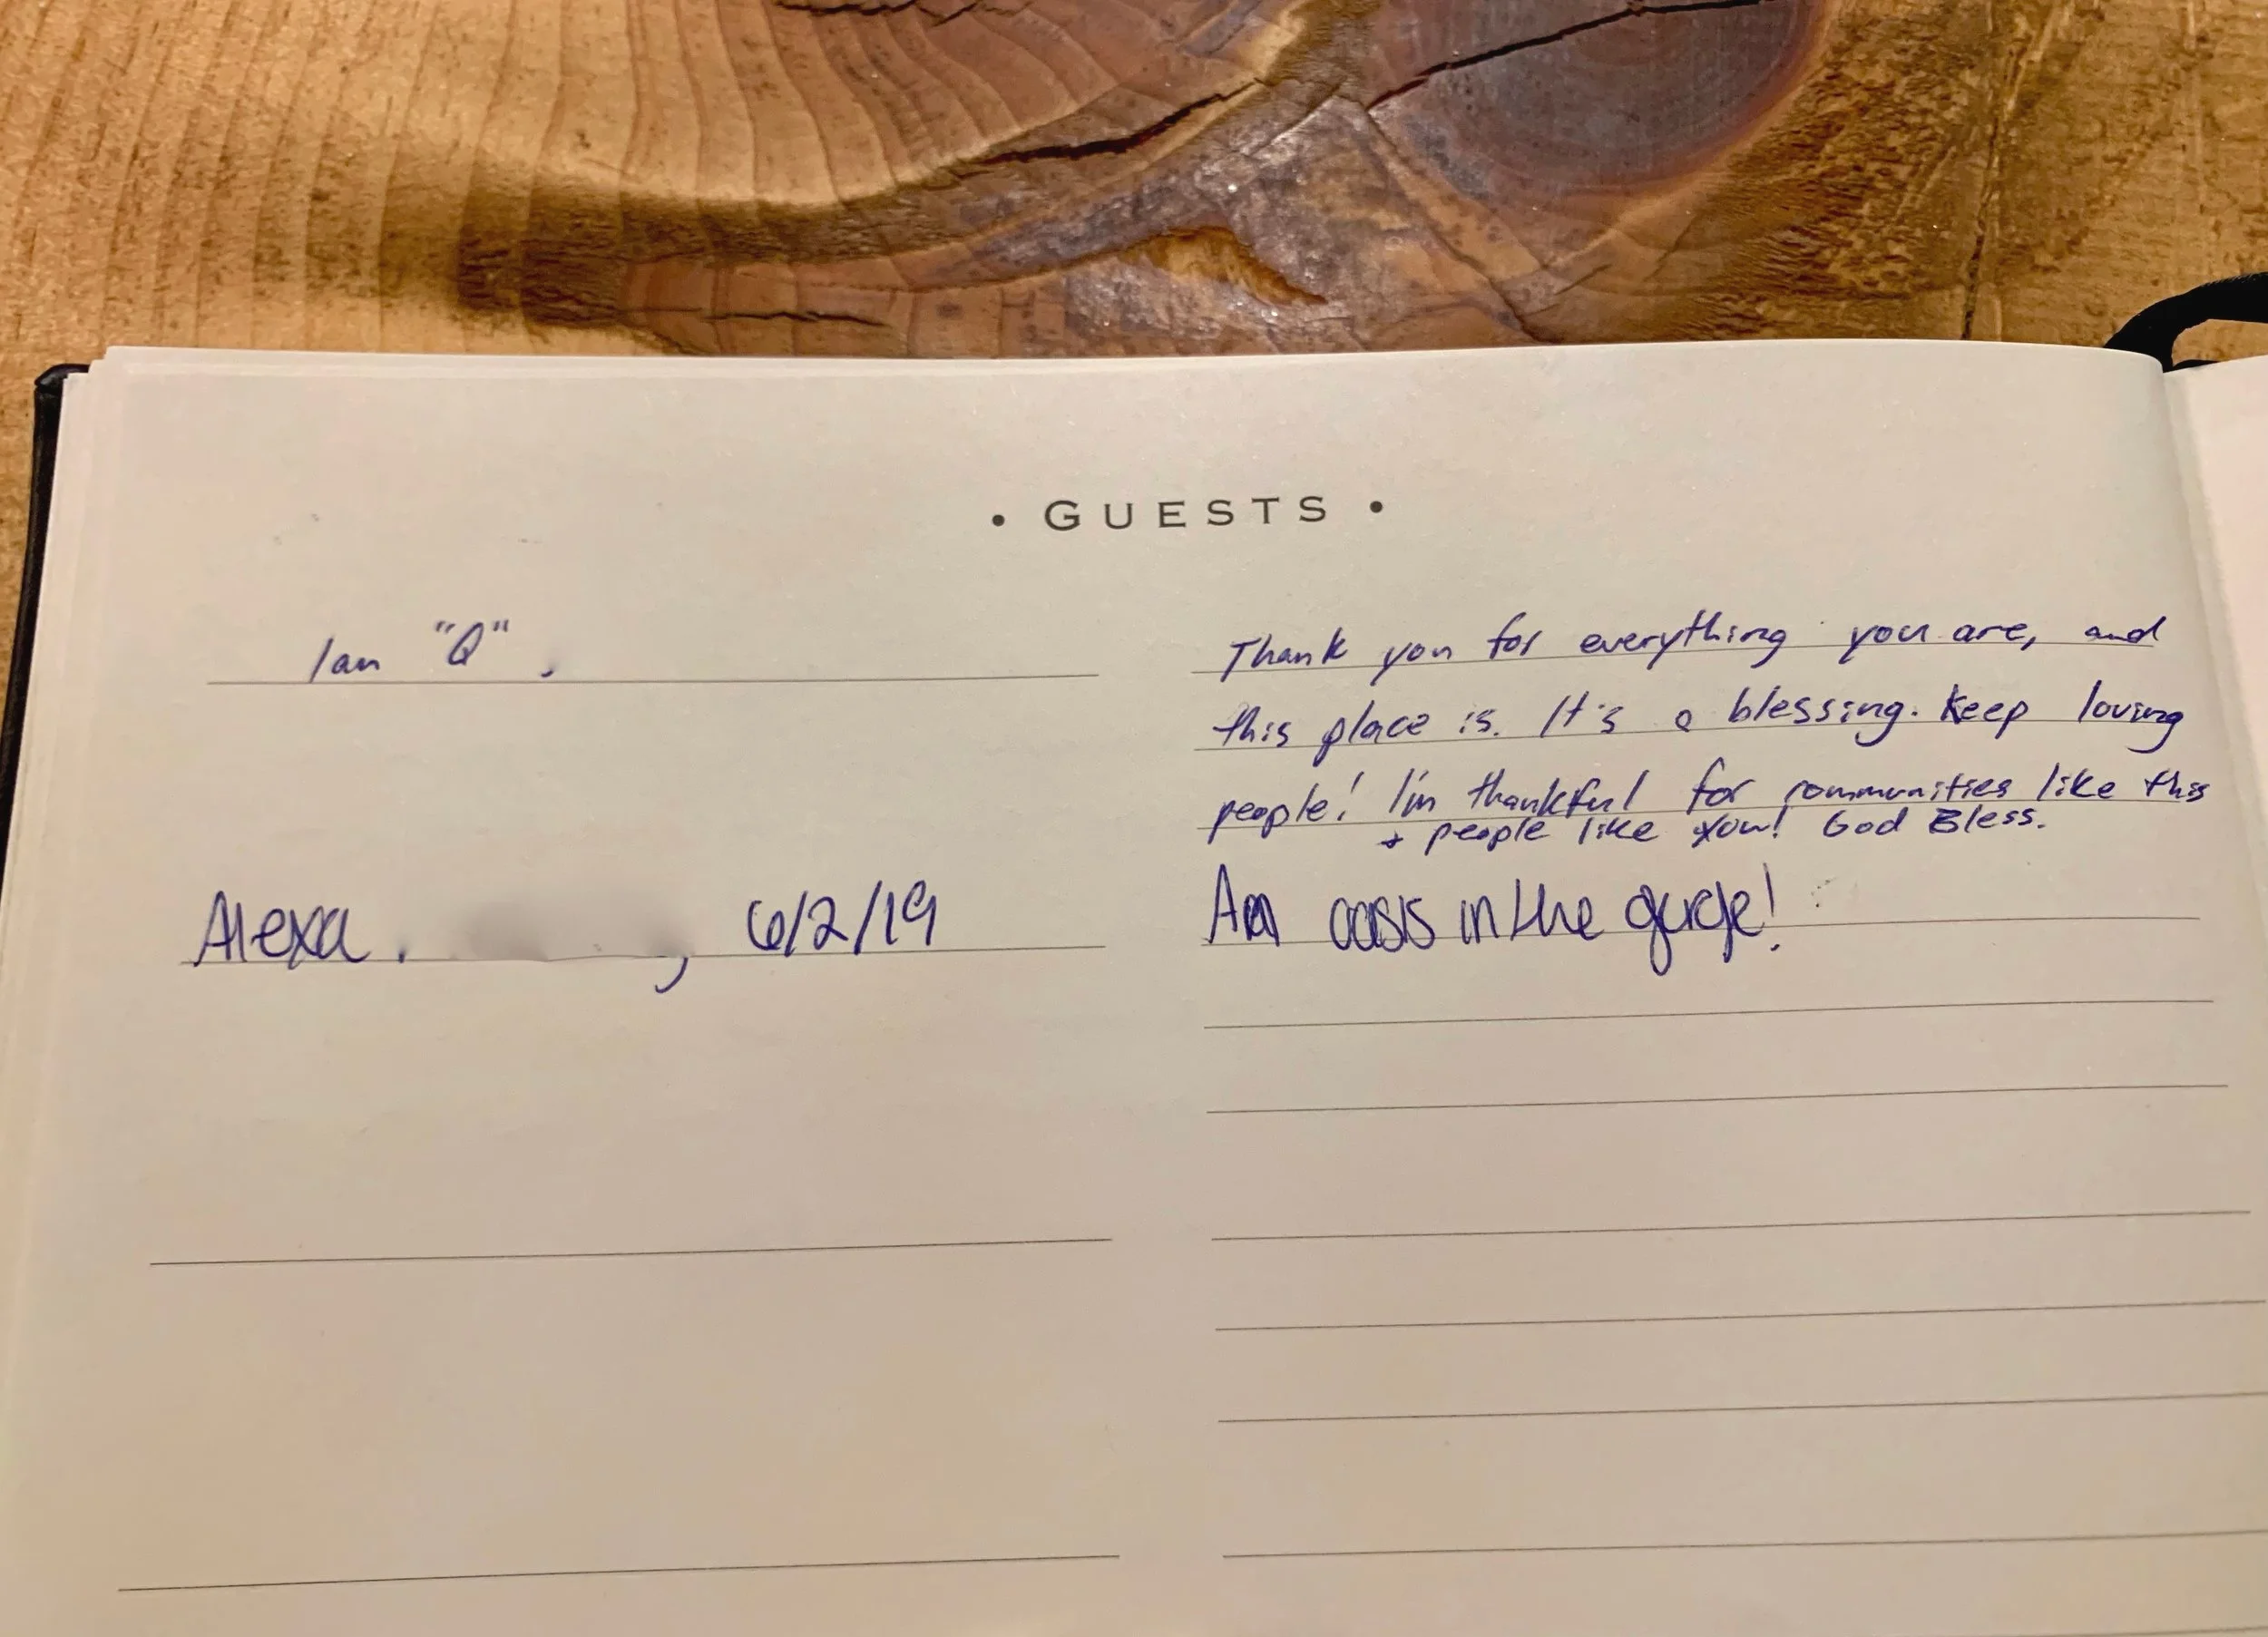 • GUESTS •
Ian "Q",
Thank you for everything you are, and
this place is. It's a blessing. Keep loving
people! I'm thankful for communities like this
+ people like you! God Bless.
Alexa . , 6/2/19
An oasis in the gorge!